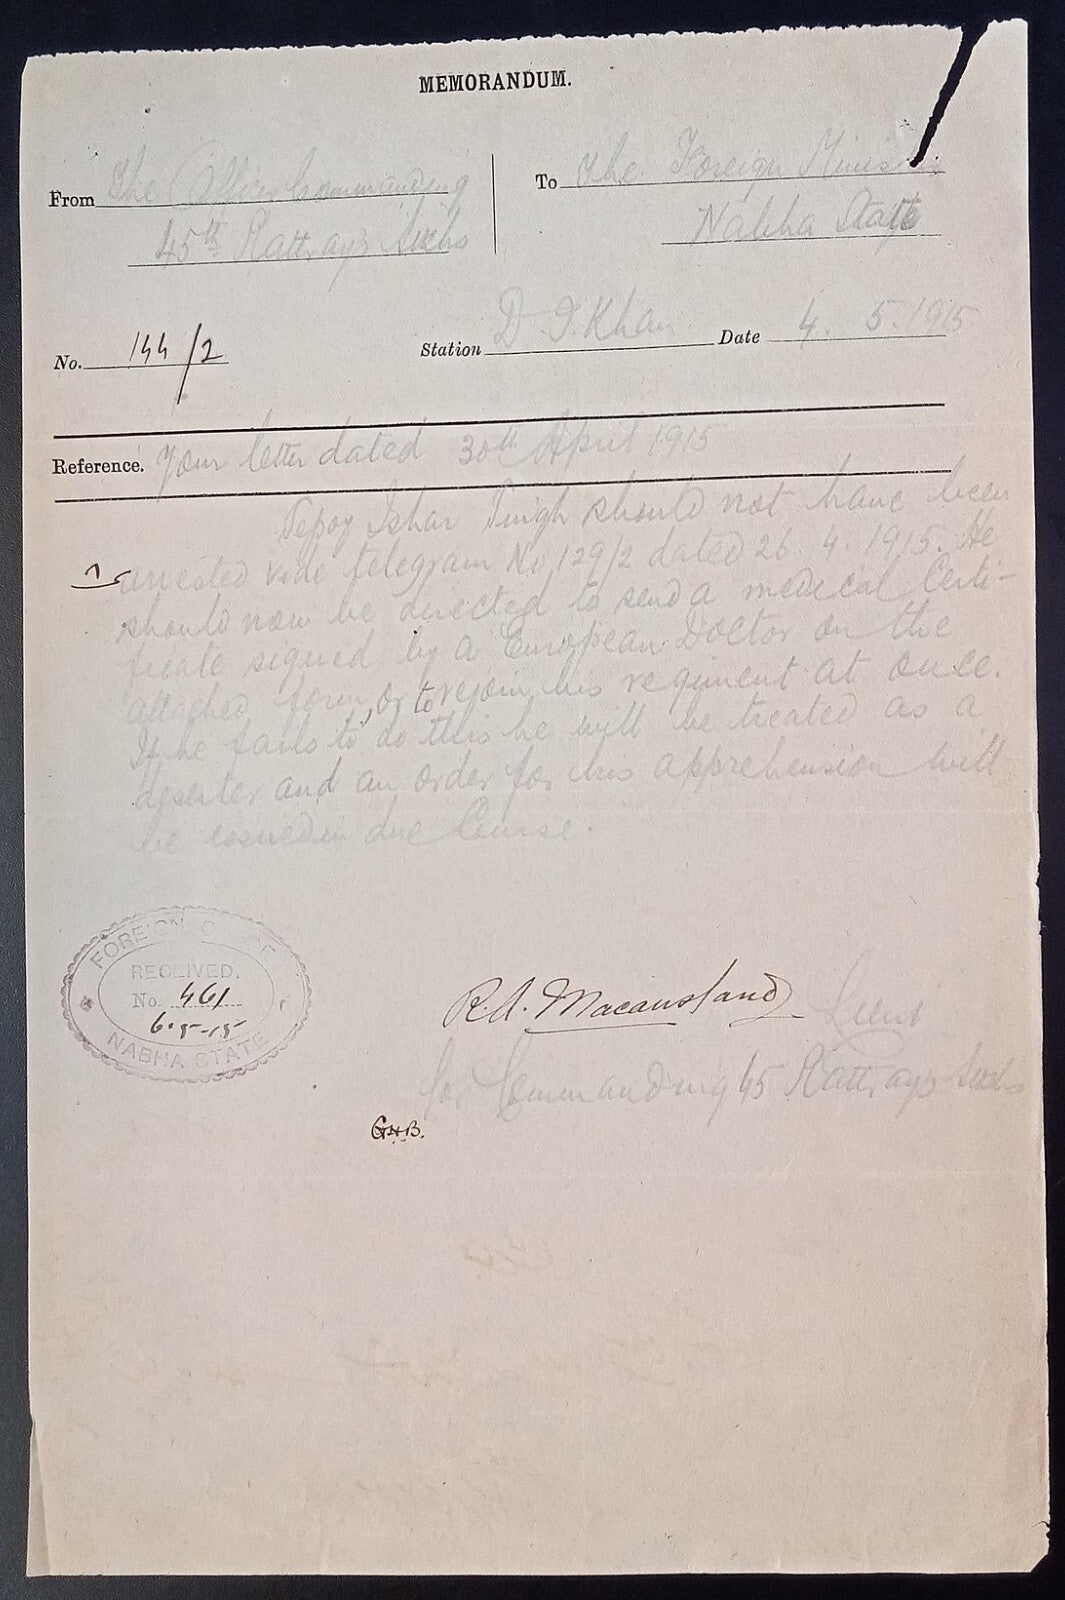 MEMORANDUM.
From The Officer Commanding
45th Rattray's Sikhs
To The Foreign Minister
Nabha State
No. 144/2
Station D. I. Khan
Date 4. 5. 1915
Reference. Your letter dated 30th April 1915
Sepoy Ishar Singh should not have been
arrested vide telegram No 129/2 dated 26. 4. 1915. He
should now be directed to send a medical Certi-
ficate signed by a European Doctor on the
attached form, or to rejoin his regiment at once.
If he fails to do this he will be treated as a
deserter and an order for his apprehension will
be issued in due Course.
FOREIGN OFFICE
RECEIVED.
No. 461
6-5-15
NABHA STATE
R.A. Macausland Lieut
for Commanding 45 Rattray's Sikhs
G.H.B.